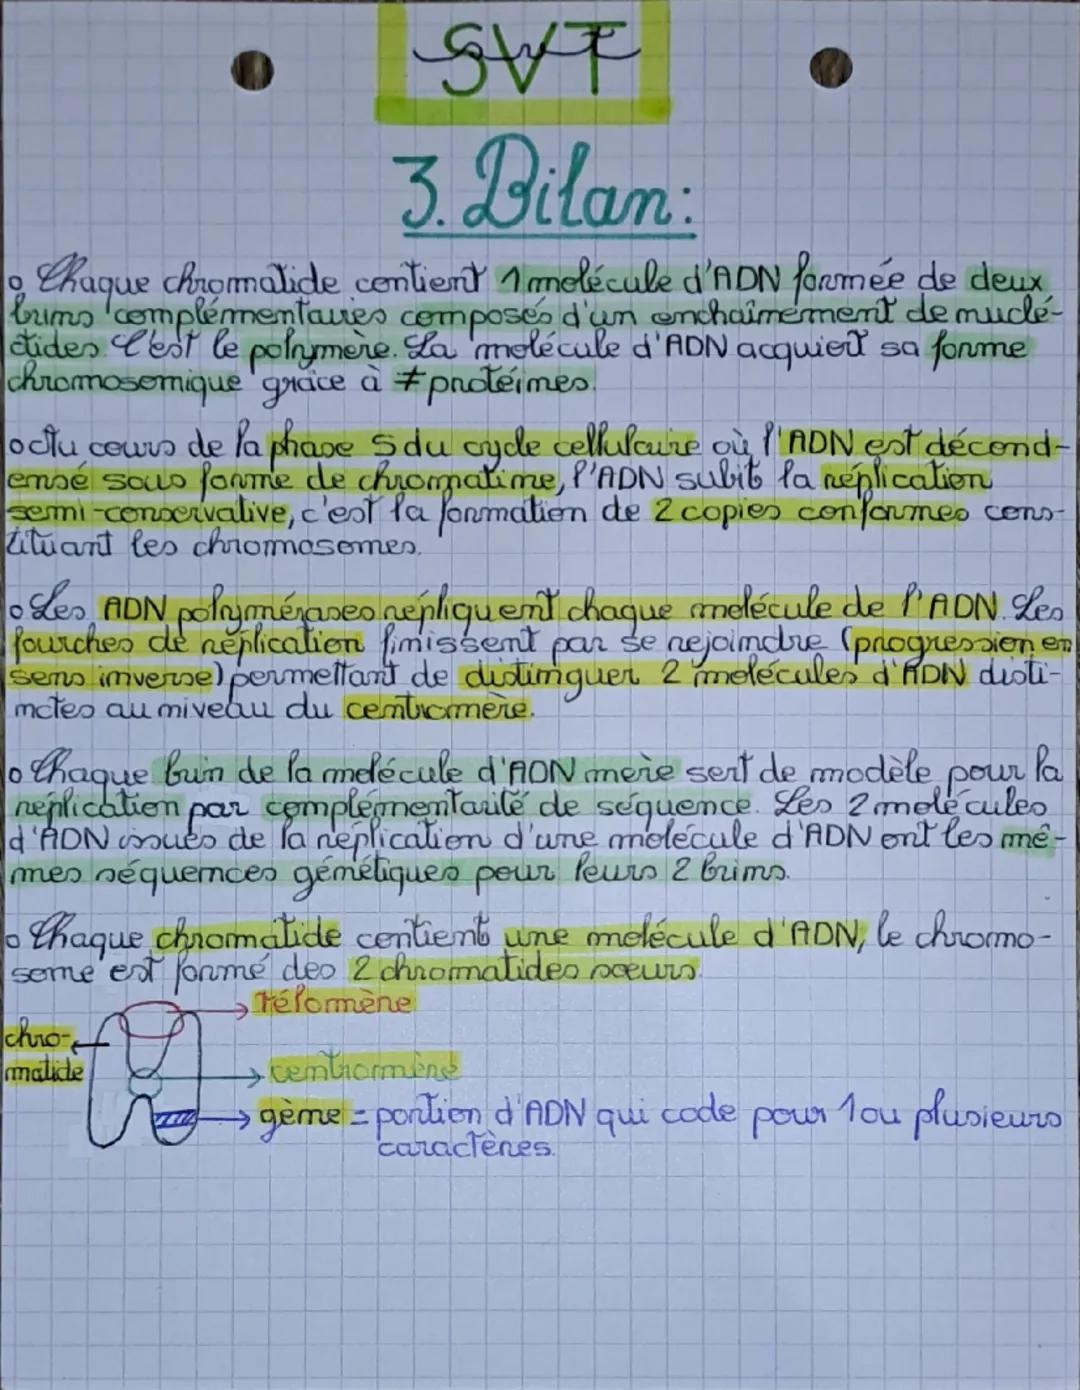 SVT
3. Bilan:
o Chaque chromatide contient 1 molécule d'ADN formée de deux
brins complémentaires composés d'un enchaînement de nuclé-
otides. C'est le polymère. La molécule d'ADN acquiert sa forme
chromosomique grâce à ≠ protéines.
o Au cours de la phase S du cycle cellulaire où l'ADN est décond-
ensé sous forme de chromatine, l'ADN subit la réplication
semi-conservative, c'est la formation de 2 copies conformes cons-
tituant les chromosomes.
o Les ADN polymérases répliquent chaque molécule de l'ADN. Les
fourches de réplication finissent par se rejoindre (progression en
sens inverse) permettant de distinguer 2 molécules d'ADN disti-
nctes au niveau du centromère.
o Chaque brin de la molécule d'ADN mère sert de modèle pour la
réplication par complémentarité de séquence. Les 2 molécules
d'ADN issues de la réplication d'une molécule d'ADN ont les mê-
mes séquences génétiques pour leurs 2 brins.
o Chaque chromatide contient une molécule d'ADN, le chromo-
some est formé des 2 chromatides sœurs.
télomère
chro-
matide
centromère
gène = portion d'ADN qui code pour 1 ou plusieurs
caractères.